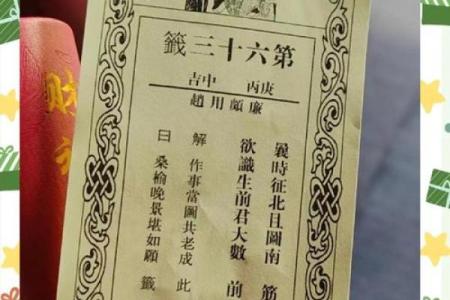 第六十三籤
庚丙 中吉
廉頗用趙
曩時征北且圖南 筋
欲識生前君大數 前
解 作事當圖共老成 此
曰 桑榆晚景堪如願 籤